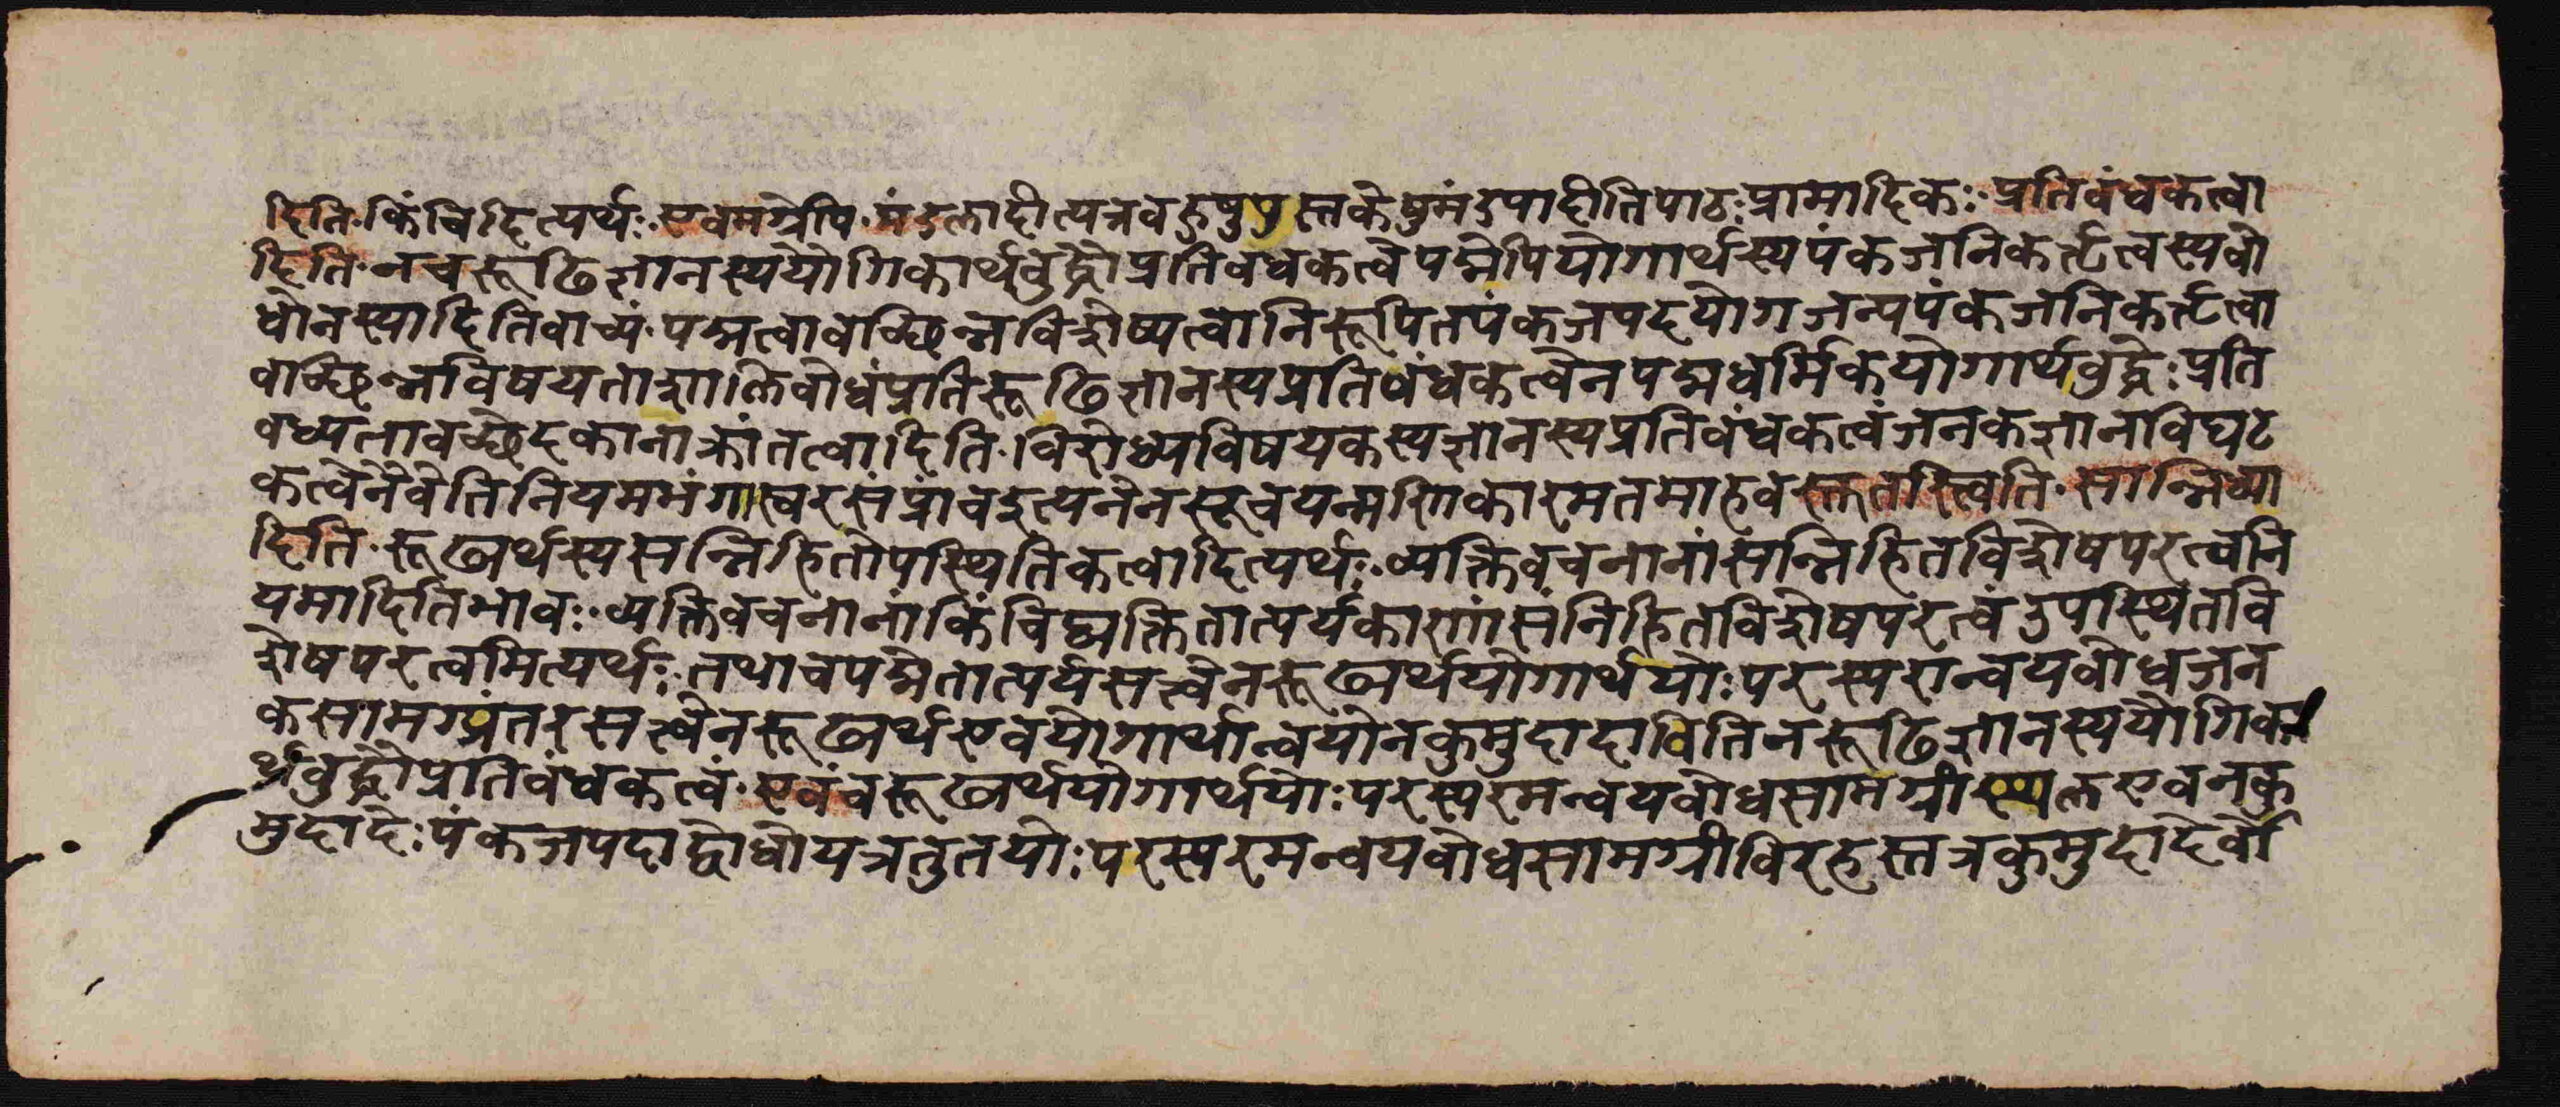 दिति॰किंचिदित्यर्थः॰एवमग्रेपि॰मंडलादीत्यत्रवहुषुपुस्तकेषुमंडपादीतिपाठःप्रामादिकः॰प्रतिवंधकत्वा
दिति॰नचरूढिज्ञानस्ययोगिकार्थवुद्धौप्रतिवधकत्वेपद्मेपियोगार्थस्यपंकजनिकर्त्तृत्वस्यवो
धोनस्यादितिवाच्यं॰पद्मत्वावच्छिन्नविशेष्यत्वानिरूपितपंकजपदयोगजन्यपंकजनिकर्त्तृत्वा
वच्छिन्नविषयताशालिवोधंप्रतिरूढिज्ञानस्यप्रतिवंधकत्वेनपद्मधर्मिकयोगार्थवुद्धेःप्रति
वध्यतावच्छेदकानाक्रांतत्वादिति॰विरोध्यविषयकस्यज्ञानस्यप्रतिवंधकत्वंजनकज्ञानविघट
कत्वेनैवेतिनियमभंगास्वरसंप्रांचइत्यनेनसूचयन्मणिकारमतमाहवस्तुतस्त्विति॰सान्निध्या
दिति॰रूढ्यर्थस्यसन्निहितोपस्थितिकत्वादित्यर्थः॰व्यक्तिवचनानांसन्निहितविशेषपरत्वनि
यमादितिभावः॰व्यक्तिवचनानांकिंचिद्व्यक्तितात्पर्यकाणांसंनिहितविशेषपरत्वंउपस्थितवि
शेषपरत्वमित्यर्थः॰तथाचपद्मेतात्पर्यसत्त्वेनरूढ्यर्थयोगार्थयोःपरस्परान्वयवोधजन
कसामग्र्यंतरसत्त्वेनरूढ्यर्थएवयोगार्थान्वयोनकुमुदादावितिनरूढिज्ञानस्ययौगिका
र्थवुद्धौप्रतिवंधकत्वं॰एवंचरूढ्यर्थयोगार्थयोःपरस्परमन्वयवोधसामग्रीस्थलएवनकु
मुदादेःपंकजपदाद्वोधोयत्रतुतयोःपरस्परमन्वयवोधसामग्रीविरहस्तत्रकुमुदादेर्वो